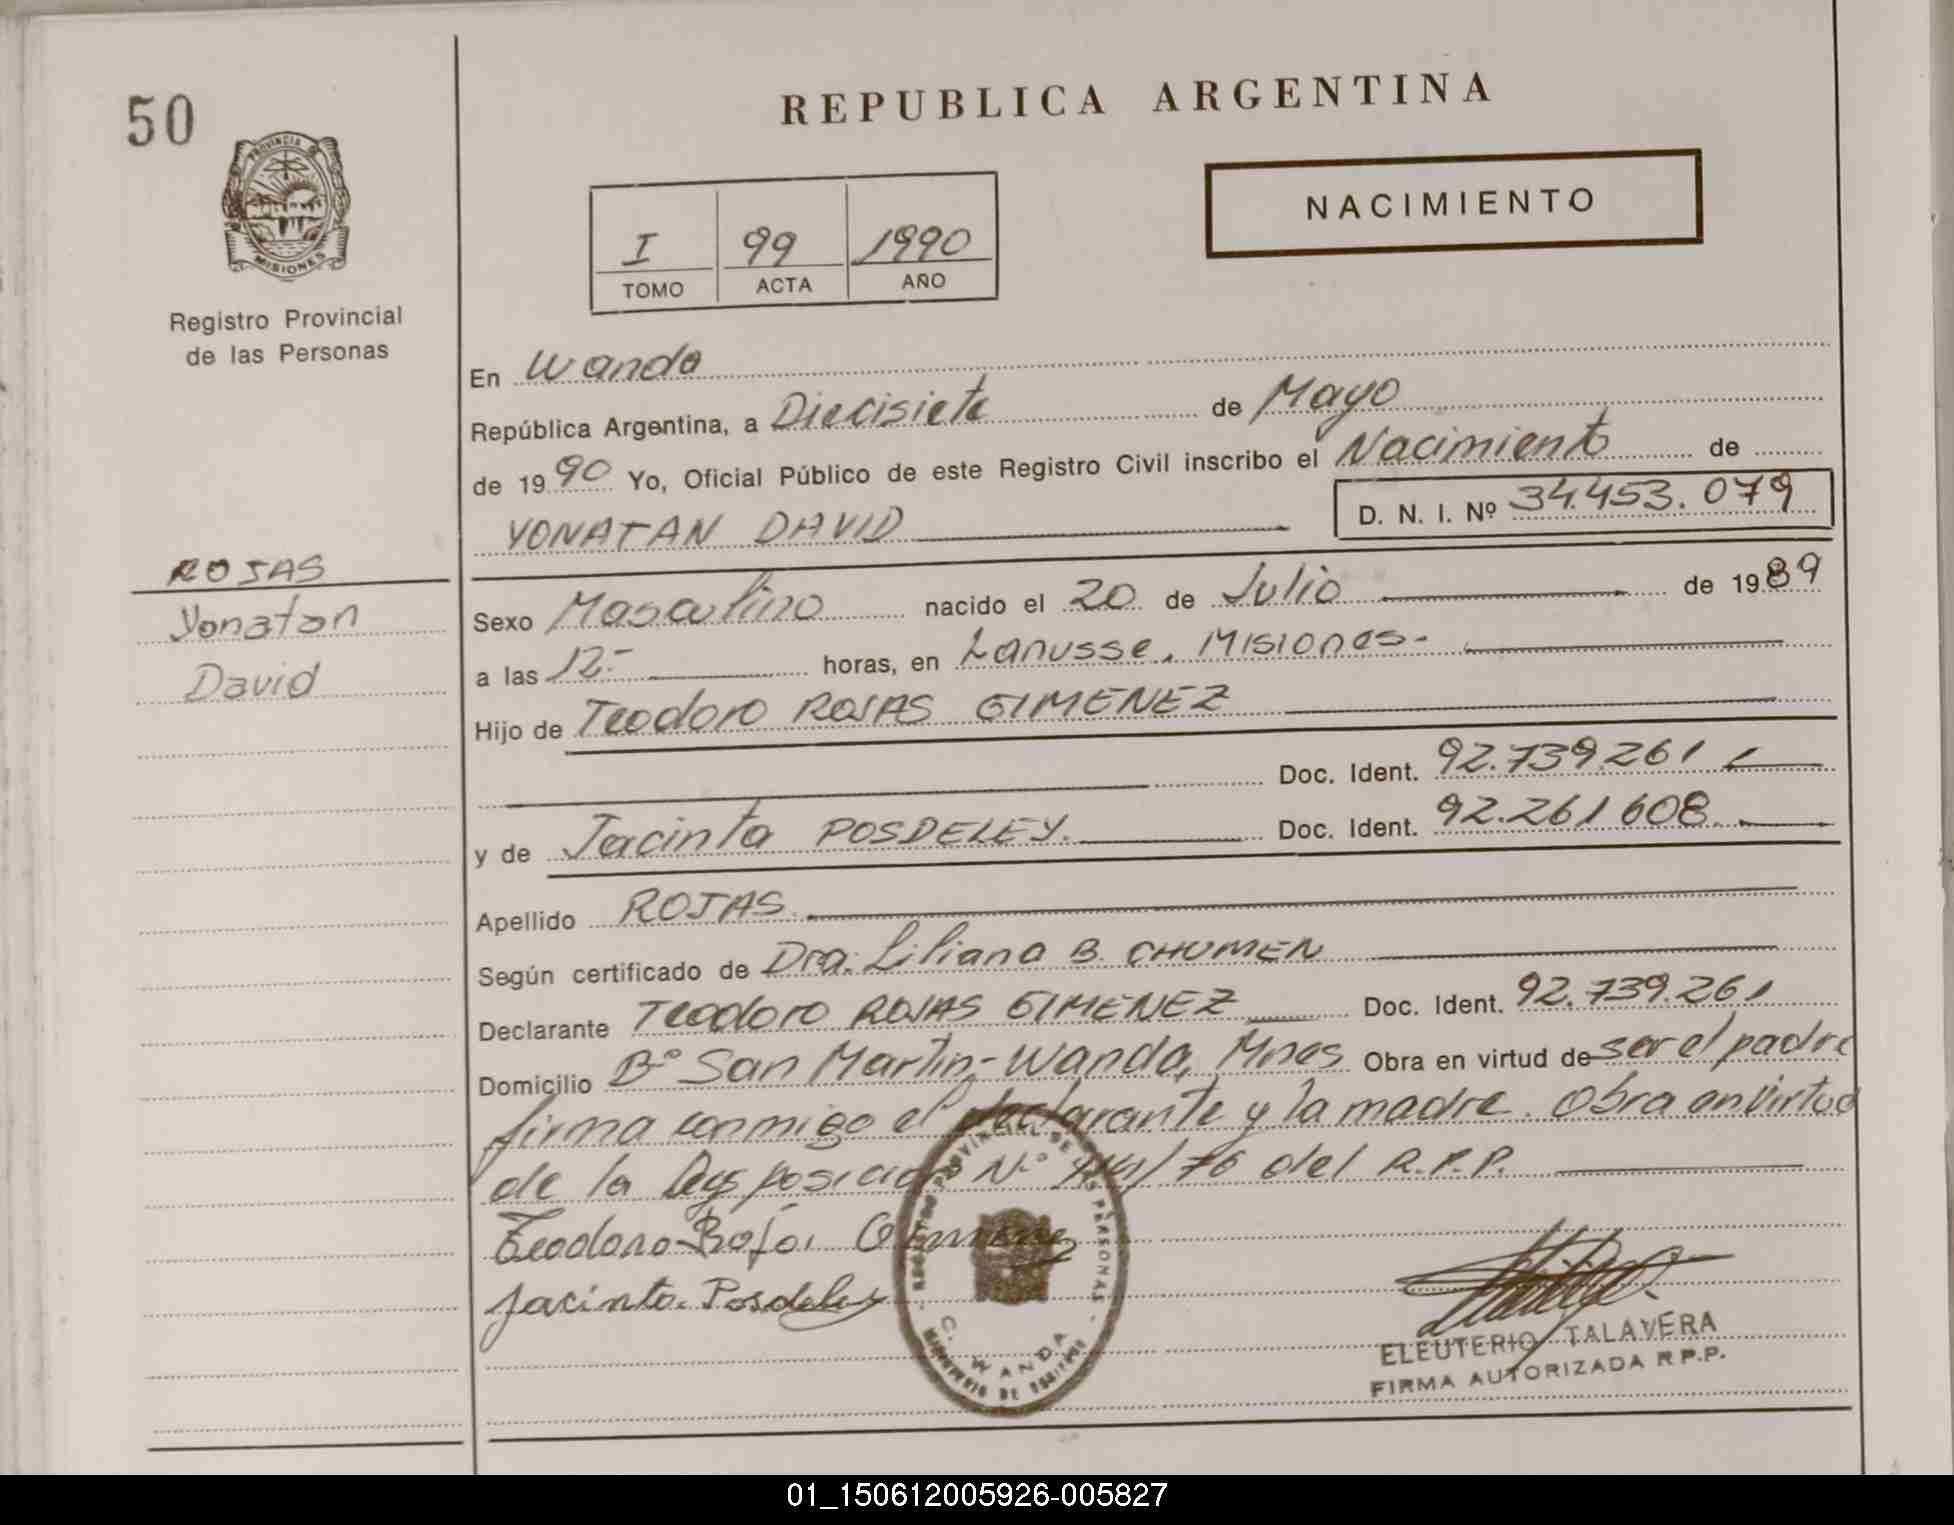 50
PROVINCIA DE
MISIONES
Registro Provincial
de las Personas
ROJAS
Yonatan
David
REPUBLICA ARGENTINA
NACIMIENTO
I 99 1990
TOMO ACTA AÑO
En Wanda
República Argentina, a Diecisiete de Mayo
de 1990 Yo, Oficial Público de este Registro Civil inscribo el Nacimiento de
YONATAN DAVID D. N. I. Nº 34.453.079
Sexo Masculino nacido el 20 de Julio de 1989
a las 12.- horas, en Lanusse, Misiones.-
Hijo de Teodoro ROJAS GIMENEZ
Doc. Ident. 92.739.261
y de Jacinta POSDELEY. Doc. Ident. 92.261608
Apellido ROJAS
Según certificado de Dra. Liliana B. CHUMEN
Declarante Teodoro ROJAS GIMENEZ Doc. Ident. 92.739.261
Domicilio Bº San Martin-Wanda, Mnes Obra en virtud de ser el padre
firma conmigo el declarante y la madre. Obra en virtud
de la Nº /76 del R.P.P.
Teodoro Rojas
Jacinta Posdeley
REGISTRO PROVINCIAL DE LAS PERSONAS
WANDA
ELEUTERIO TALAVERA
FIRMA AUTORIZADA R.P.P.
01_150612005926-005827